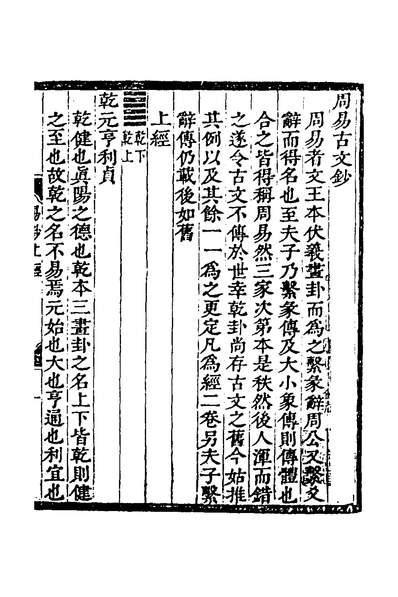 周易古文鈔
周易者文王本伏羲畫卦而為之繫彖辭周公又繫爻
辭而得名也至夫子乃繫彖傳及大小象傳則傳體也
合之皆得稱周易然三家次第本是秩然後人渾而錯
之遂令古文不傳於世幸乾卦尚存古文之舊今姑推
其例以及其餘一一為之更定凡為經二卷另夫子繫
辭傳仍載後如舊
上經
乾下
乾上
乾元亨利貞
乾健也眞陽之德也乾本三畫卦之名上下皆乾則健
之至也故乾之名不易焉元始也大也亨通也利宜也